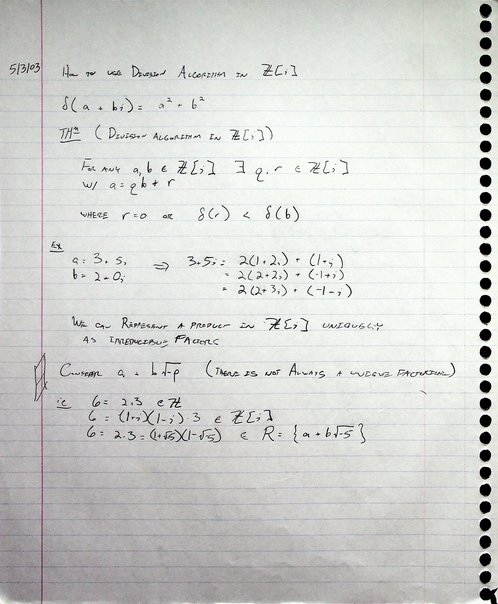 5/3/03 How to use Division Algorithm in ℤ[i]
δ(a + bi) = a² + b²
THᵐ (Division Algorithm in ℤ[i])
For any a, b ∈ ℤ[i] ∃ q, r ∈ ℤ[i]
w/ a = qb + r
where r=0 or δ(r) < δ(b)
Ex
a = 3 + 5i ⇒ 3+5i = 2(1+2i) + (1+i)
b = 2 + 0i = 2(2+2i) + (-1+i)
= 2(2+3i) + (-1-i)
We can Represent a product in ℤ[i] uniquely
as irreducible Factors
Consider a + b√-p (There is not Always a unique Factorization)
i.e. 6 = 2·3 ∈ ℤ
6 = (1+i)(1-i)·3 ∈ ℤ[i]
6 = 2·3 = (1+√-5)(1-√-5) ∈ R = {a + b√-5}